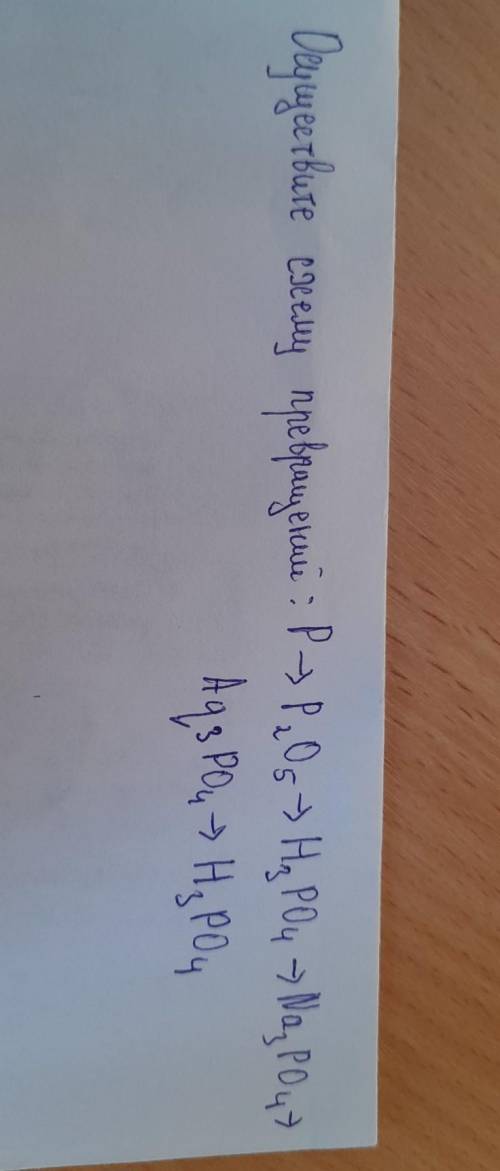 Осуществите схему превращений: P → P₂O₅ → H₃PO₄ → Na₃PO₄ →
Ag₃PO₄ → H₃PO₄